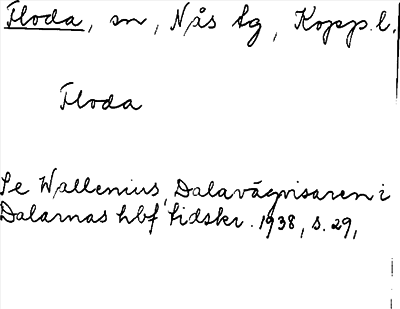 Floda, sn, Nås tg, Kopp. l.
Floda
Se Wallenius, Dalavägvisaren i
Dalarnas hbf tidskr. 1938, s. 29,